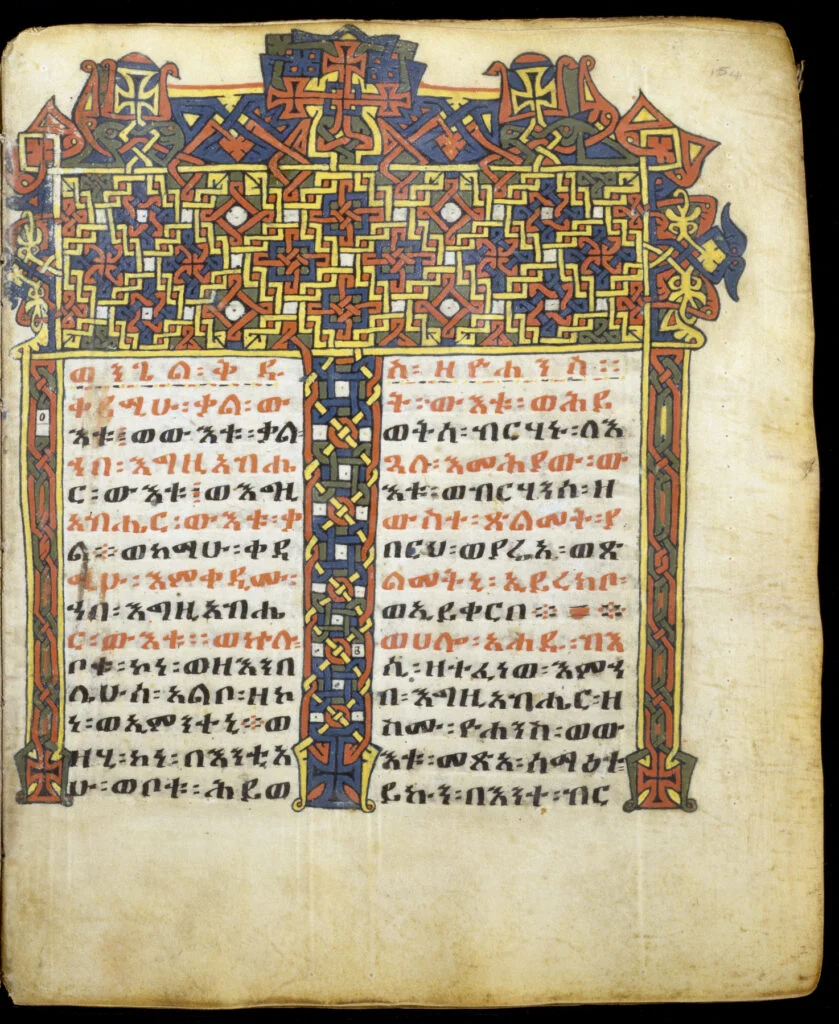 154
ወንጌል፡ቅዱ
ስ፡ዘዮሐንስ።
ቀዳሚሁ፡ቃል፡ው
እቱ፤ወውእቱ፡ቃል
ኀበ፡እግዚአብሔ
ር፡ውእቱ፤ወእግዚ
አብሔር፡ውእቱ፡ቃ
ል።ወከማሁ፡ቀዳ
ሚሁ፡እምቀዲሙ፡
ኀበ፡እግዚአብሔ
ር፡ውእቱ።ወኵሉ፡
ቦቱ፡ኮነ፡ወዘእንበ
ሌሁሰ፡አልቦ፡ዘኮ
ነ፡ወኢምንተኒ።ወ
ዘሂ፡ኮነ፡በእንቲአ
ሁ፡ወቦቱ፡ሕይወ
ት፡ውእቱ፡ወሕይ
ወትሰ፡ብርሃኑ፡ለእ
ጓለ፡እመሕያው፡ው
እቱ፡ወብርሃንሰ፡ዘ
ውስተ፡ጽልመት፡ያ
በርህ፡ወያሬኢ፡ወጽ
ልመትኒ፡ኢይረክቦ፡
ወኢይቀርቦ።
ወሀሎ፡አሐዱ፡ብእ
ሲ፡ዘተፈነወ፡እምኀ
በ፡እግዚአብሔር፡ዘ
ስሙ፡ዮሐንስ፡ወው
እቱ፡መጽአ፡ለስምዕ፡
ይኩን፡በእንተ፡ብር